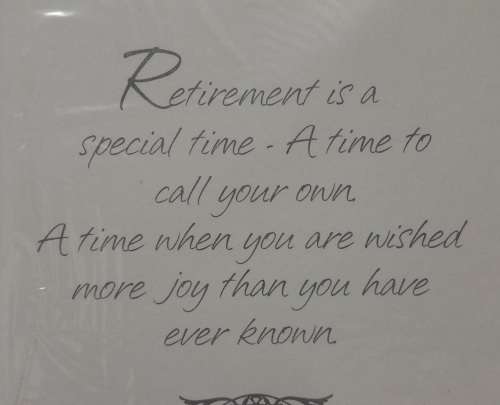 Retirement is a
special time - A time to
call your own.
A time when you are wished
more joy than you have
ever known.